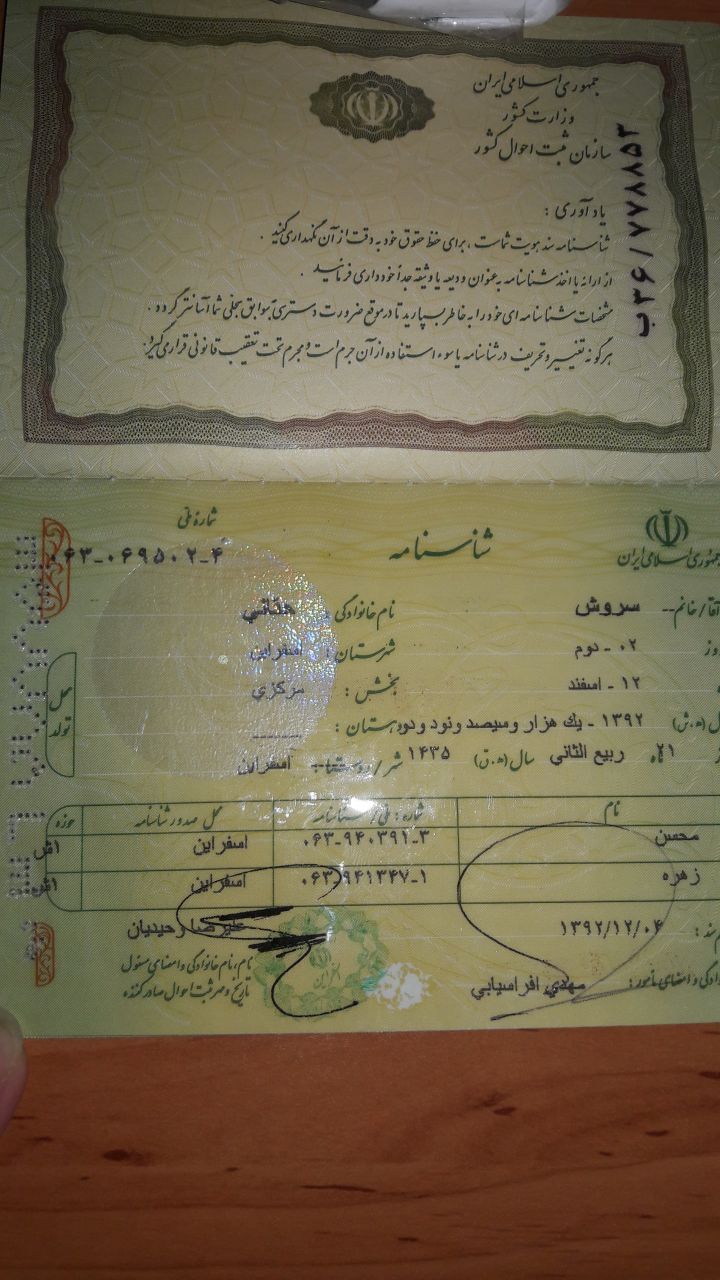 جمهوری اسلامی ایران
وزارت کشور
سازمان ثبت احوال کشور
ب۳۶/۷۷۸۸۵۳
یادآوری :
شناسنامه سند هویت شماست ، برای حفظ حقوق خود به دقت از آن نگهداری کنید .
از ارائه یا اخذ شناسنامه به عنوان ودیعه یا وثیقه جداً خودداری فرمائید .
مشخصات شناسنامه ای خود را به خاطر بسپارید تا در موقع ضرورت دسترسی بسوابق سجلی شما آسانتر گردد .
هرگونه تغییر و تحریف در شناسنامه یا سوء استفاده از آن جرم است و مجرم تحت تعقیب قانونی قرار می گیرد.
جمهوری اسلامی ایران
شناسنامه
شماره ملی
۰۶۳-۰۶۹۵۰۲-۴
آقا/خانم-- سروش نام خانوادگی :
۰۲ - دوم شهرستان : اسفراین
۱۲ - اسفند بخش : مرکزي
۱۳۹۲ - یك هزار و سیصد و نود و دو دهستان : ------
۲۱ ماه ربیع الثاني سال (ه.ق) ۱۴۳۵ شهر/ اسفراین
محل تولد
نام شماره ملی/شناسنامه محل صدور شناسنامه حوزه
محسن ۰۶۳-۹۴۰۳۹۱-۳ اسفراین ۱ش
زهره ۰۶۳-۹۴۱۳۴۷-۱ اسفراین ۱ش
۱۳۹۲/۱۲/۰۴ علیرضا وحیدیان
مهدي افراسیابي
نام، نام خانوادگی و امضای مسئول
تاریخ و مهر ثبت احوال صادر کننده